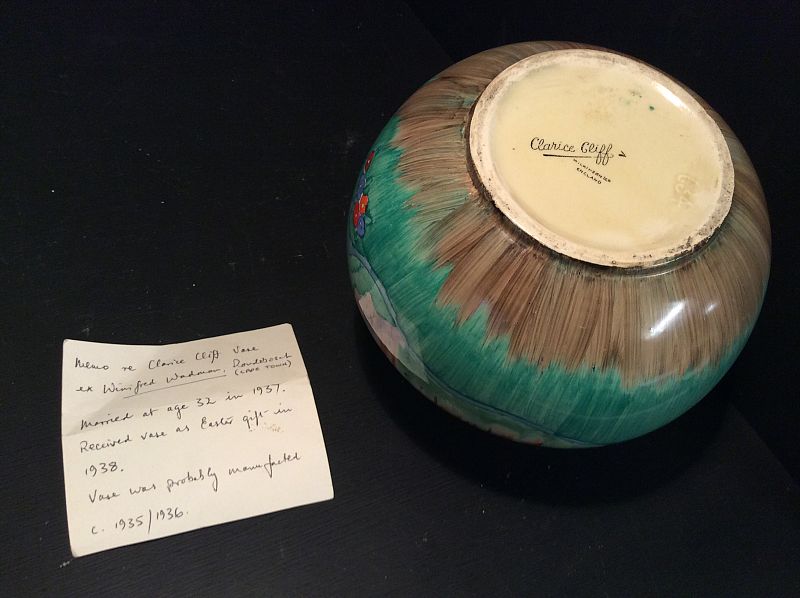 Memo re Clarice Cliff Vase
ex Winifred Wadman, Rondebosch
(CAPE TOWN)
Married at age 32 in 1937.
Received vase as Easter gift in
1938.
Vase was probably manufacted
c. 1935/1936.
Clarice Cliff
WILKINSON LTD
ENGLAND